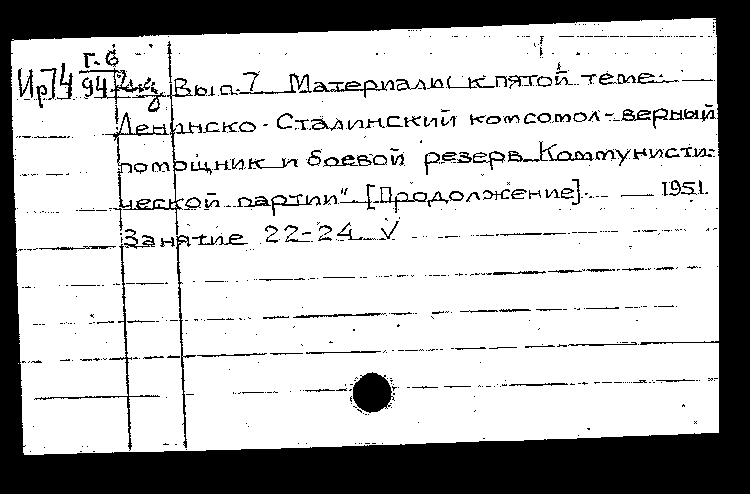 Г.6
Ир74 94 2экз Вып.7 Материалы к пятой теме:
Ленинско-Сталинский комсомол-верный
помощник и боевой резерв Коммунисти-
ческой партии". [Продолжение]. 1951.
Занятие 22-24. ✓